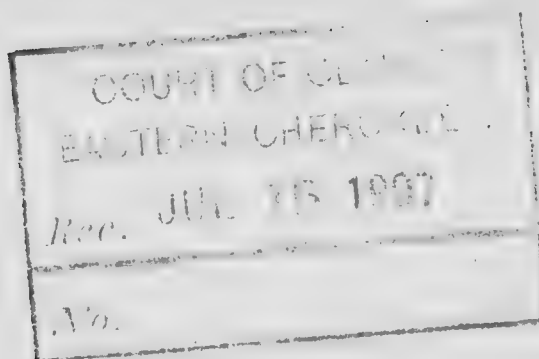 COURT OF
EASTERN CHEROKEE
Rec. JUL 1907
No.